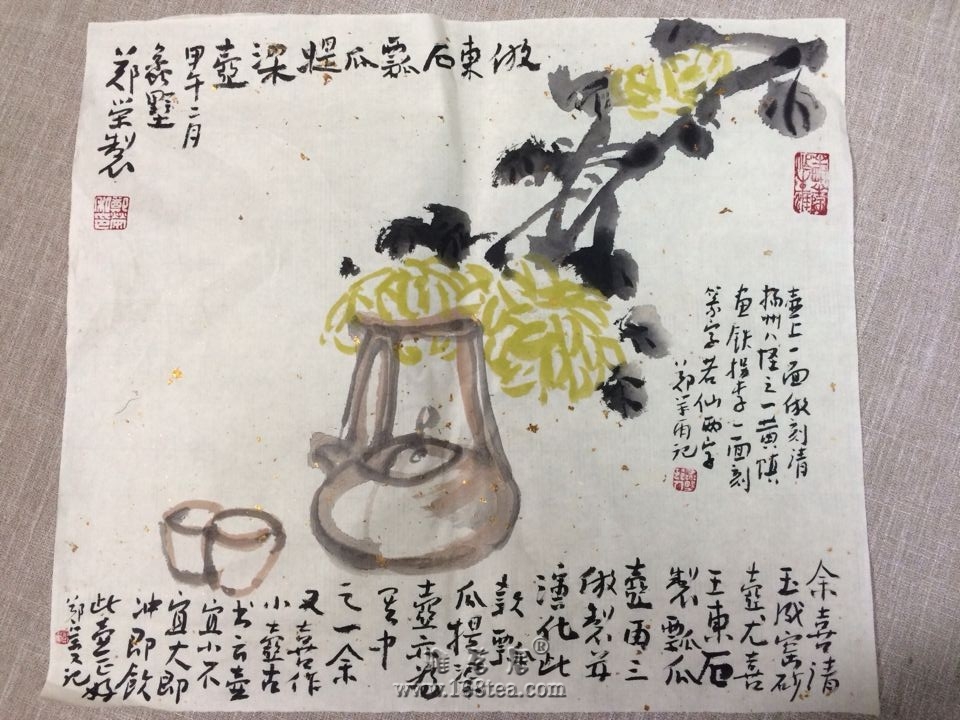 倣東石瓢瓜提梁壺
甲午二月
郑荣製
壶上一面倣刻清
扬州八怪之一黄慎
画铁拐李一面刻
篆字若仙两字
郑荣又记
余喜清
玉成窑砂
壶尤喜
王東石
製瓢瓜
壶再三
倣製并
演化此
款瓢
瓜提梁
壶亦為
其中
之一余
又喜作
小壶古
书云壶
宜小不
宜大即
冲即飲
此壶正好
郑荣又记
雅茗居®
www.168tea.com